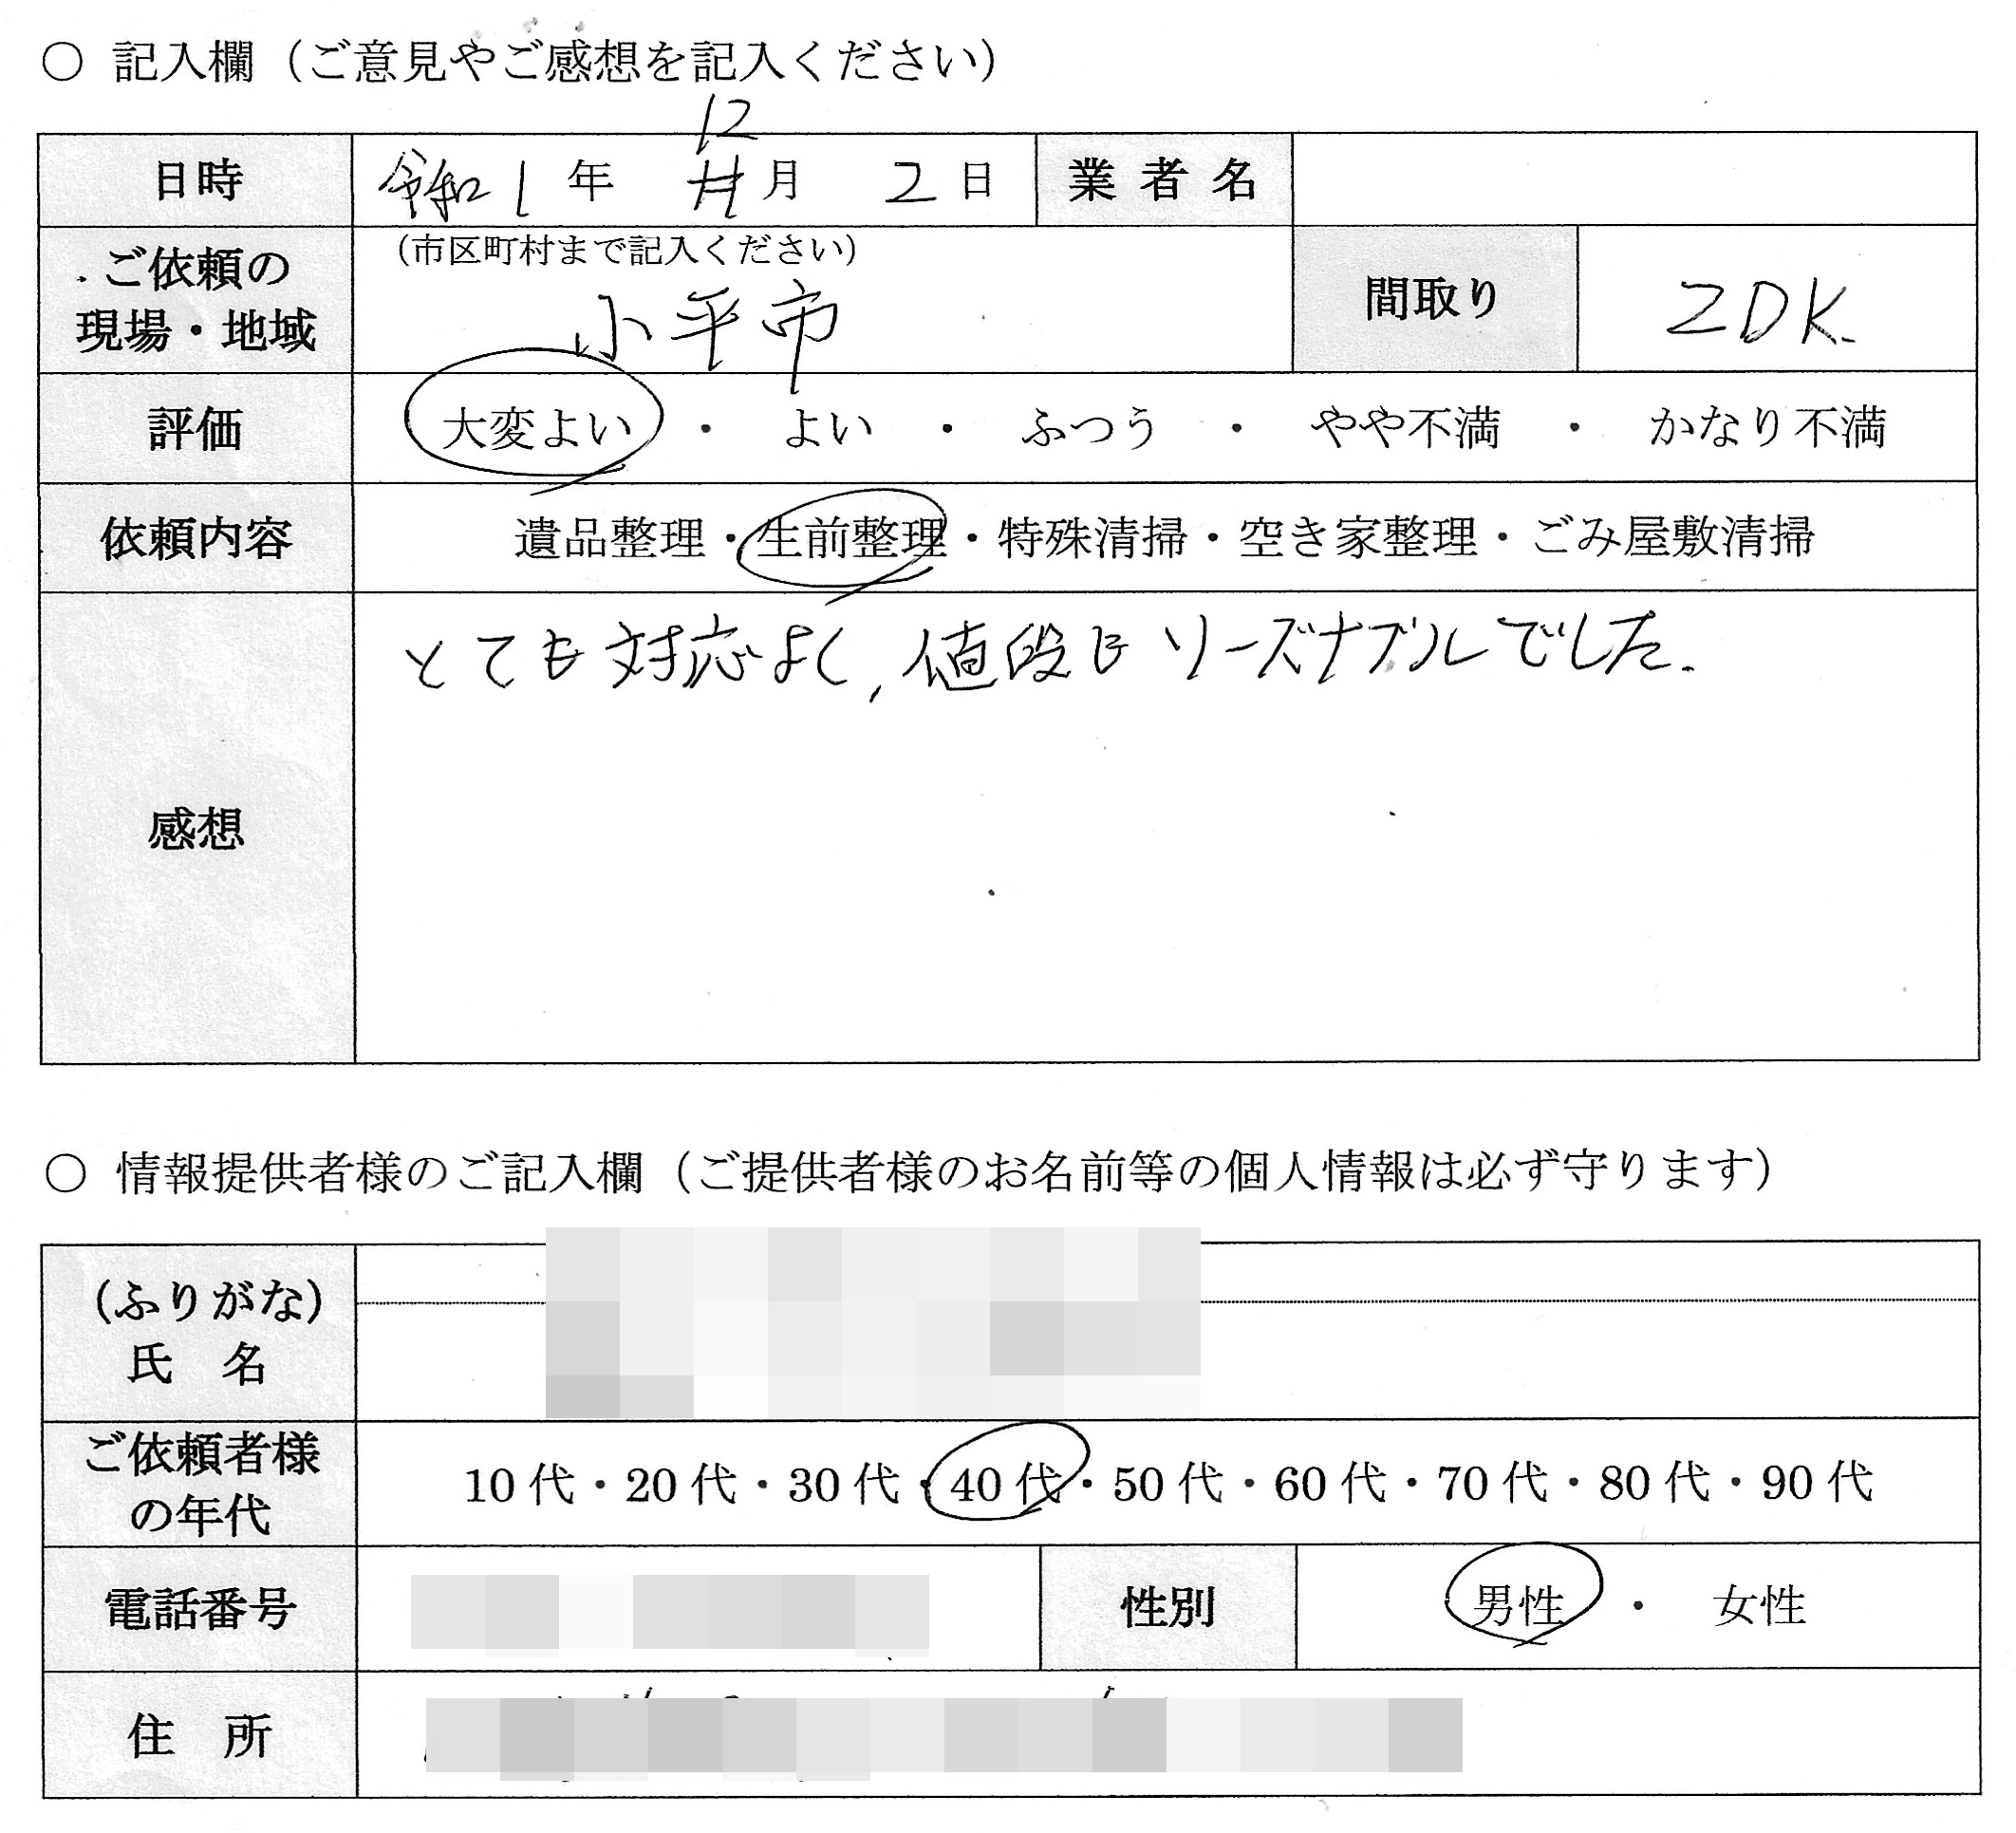 ○ 記入欄（ご意見やご感想を記入ください）
12
日時 令和1年 11月 2日 業者名
ご依頼の
現場・地域
（市区町村まで記入ください）
小平市
間取り 2DK.
評価 大変よい ・ よい ・ ふつう ・ やや不満 ・ かなり不満
依頼内容 遺品整理・生前整理・特殊清掃・空き家整理・ごみ屋敷清掃
感想
とても対応よく,値段もリーズナブルでした.
○ 情報提供者様のご記入欄（ご提供者様のお名前等の個人情報は必ず守ります）
（ふりがな）
氏 名
ご依頼者様
の年代
10代・20代・30代・40代・50代・60代・70代・80代・90代
電話番号 性別 男性 ・ 女性
住 所